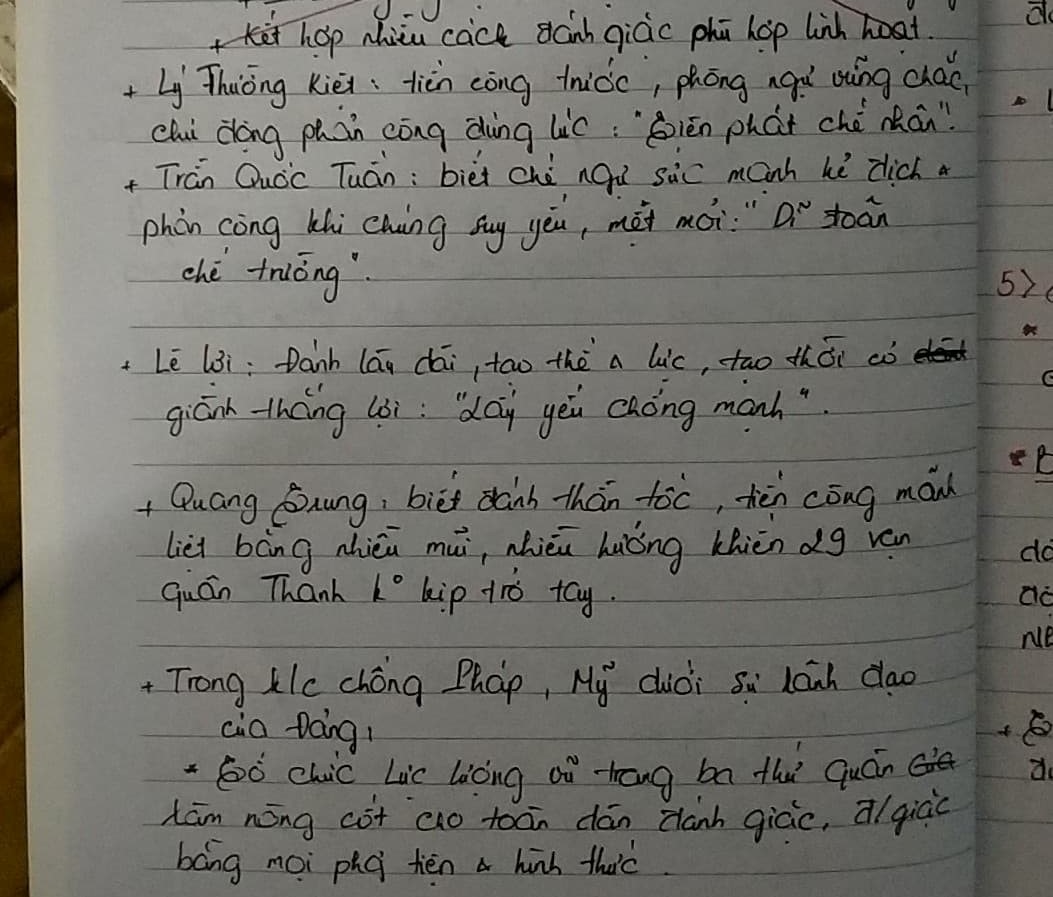 + Kết hợp nhiều cách đánh giặc phù hợp linh hoạt.
+ Lý Thường Kiệt: tiến công trước, phòng ngự vững chắc,
chủ động phản công đúng lúc: "Biên phát chế nhân".
+ Trần Quốc Tuấn: biết chế ngự sức mạnh kẻ địch &
phản công khi chúng suy yếu, mệt mỏi: "Dĩ đoãn
chế trường".
+ Lê Lợi: Đánh lâu dài, tạo thế & lực, tạo thời cơ
giành thắng lợi: "Lấy yếu chống mạnh".
+ Quang Trung: biết đánh thần tốc, tiến công mãnh
liệt bằng nhiều mũi, nhiều hướng khiến 29 vạn
quân Thanh k° kịp trở tay.
+ Trong k/c chống Pháp, Mỹ dưới sự lãnh đạo
của Đảng,
* Tổ chức Lực lượng vũ trang ba thứ quân
làm nòng cốt cho toàn dân đánh giặc, đ/giặc
bằng mọi phg tiện & hình thức.
5>